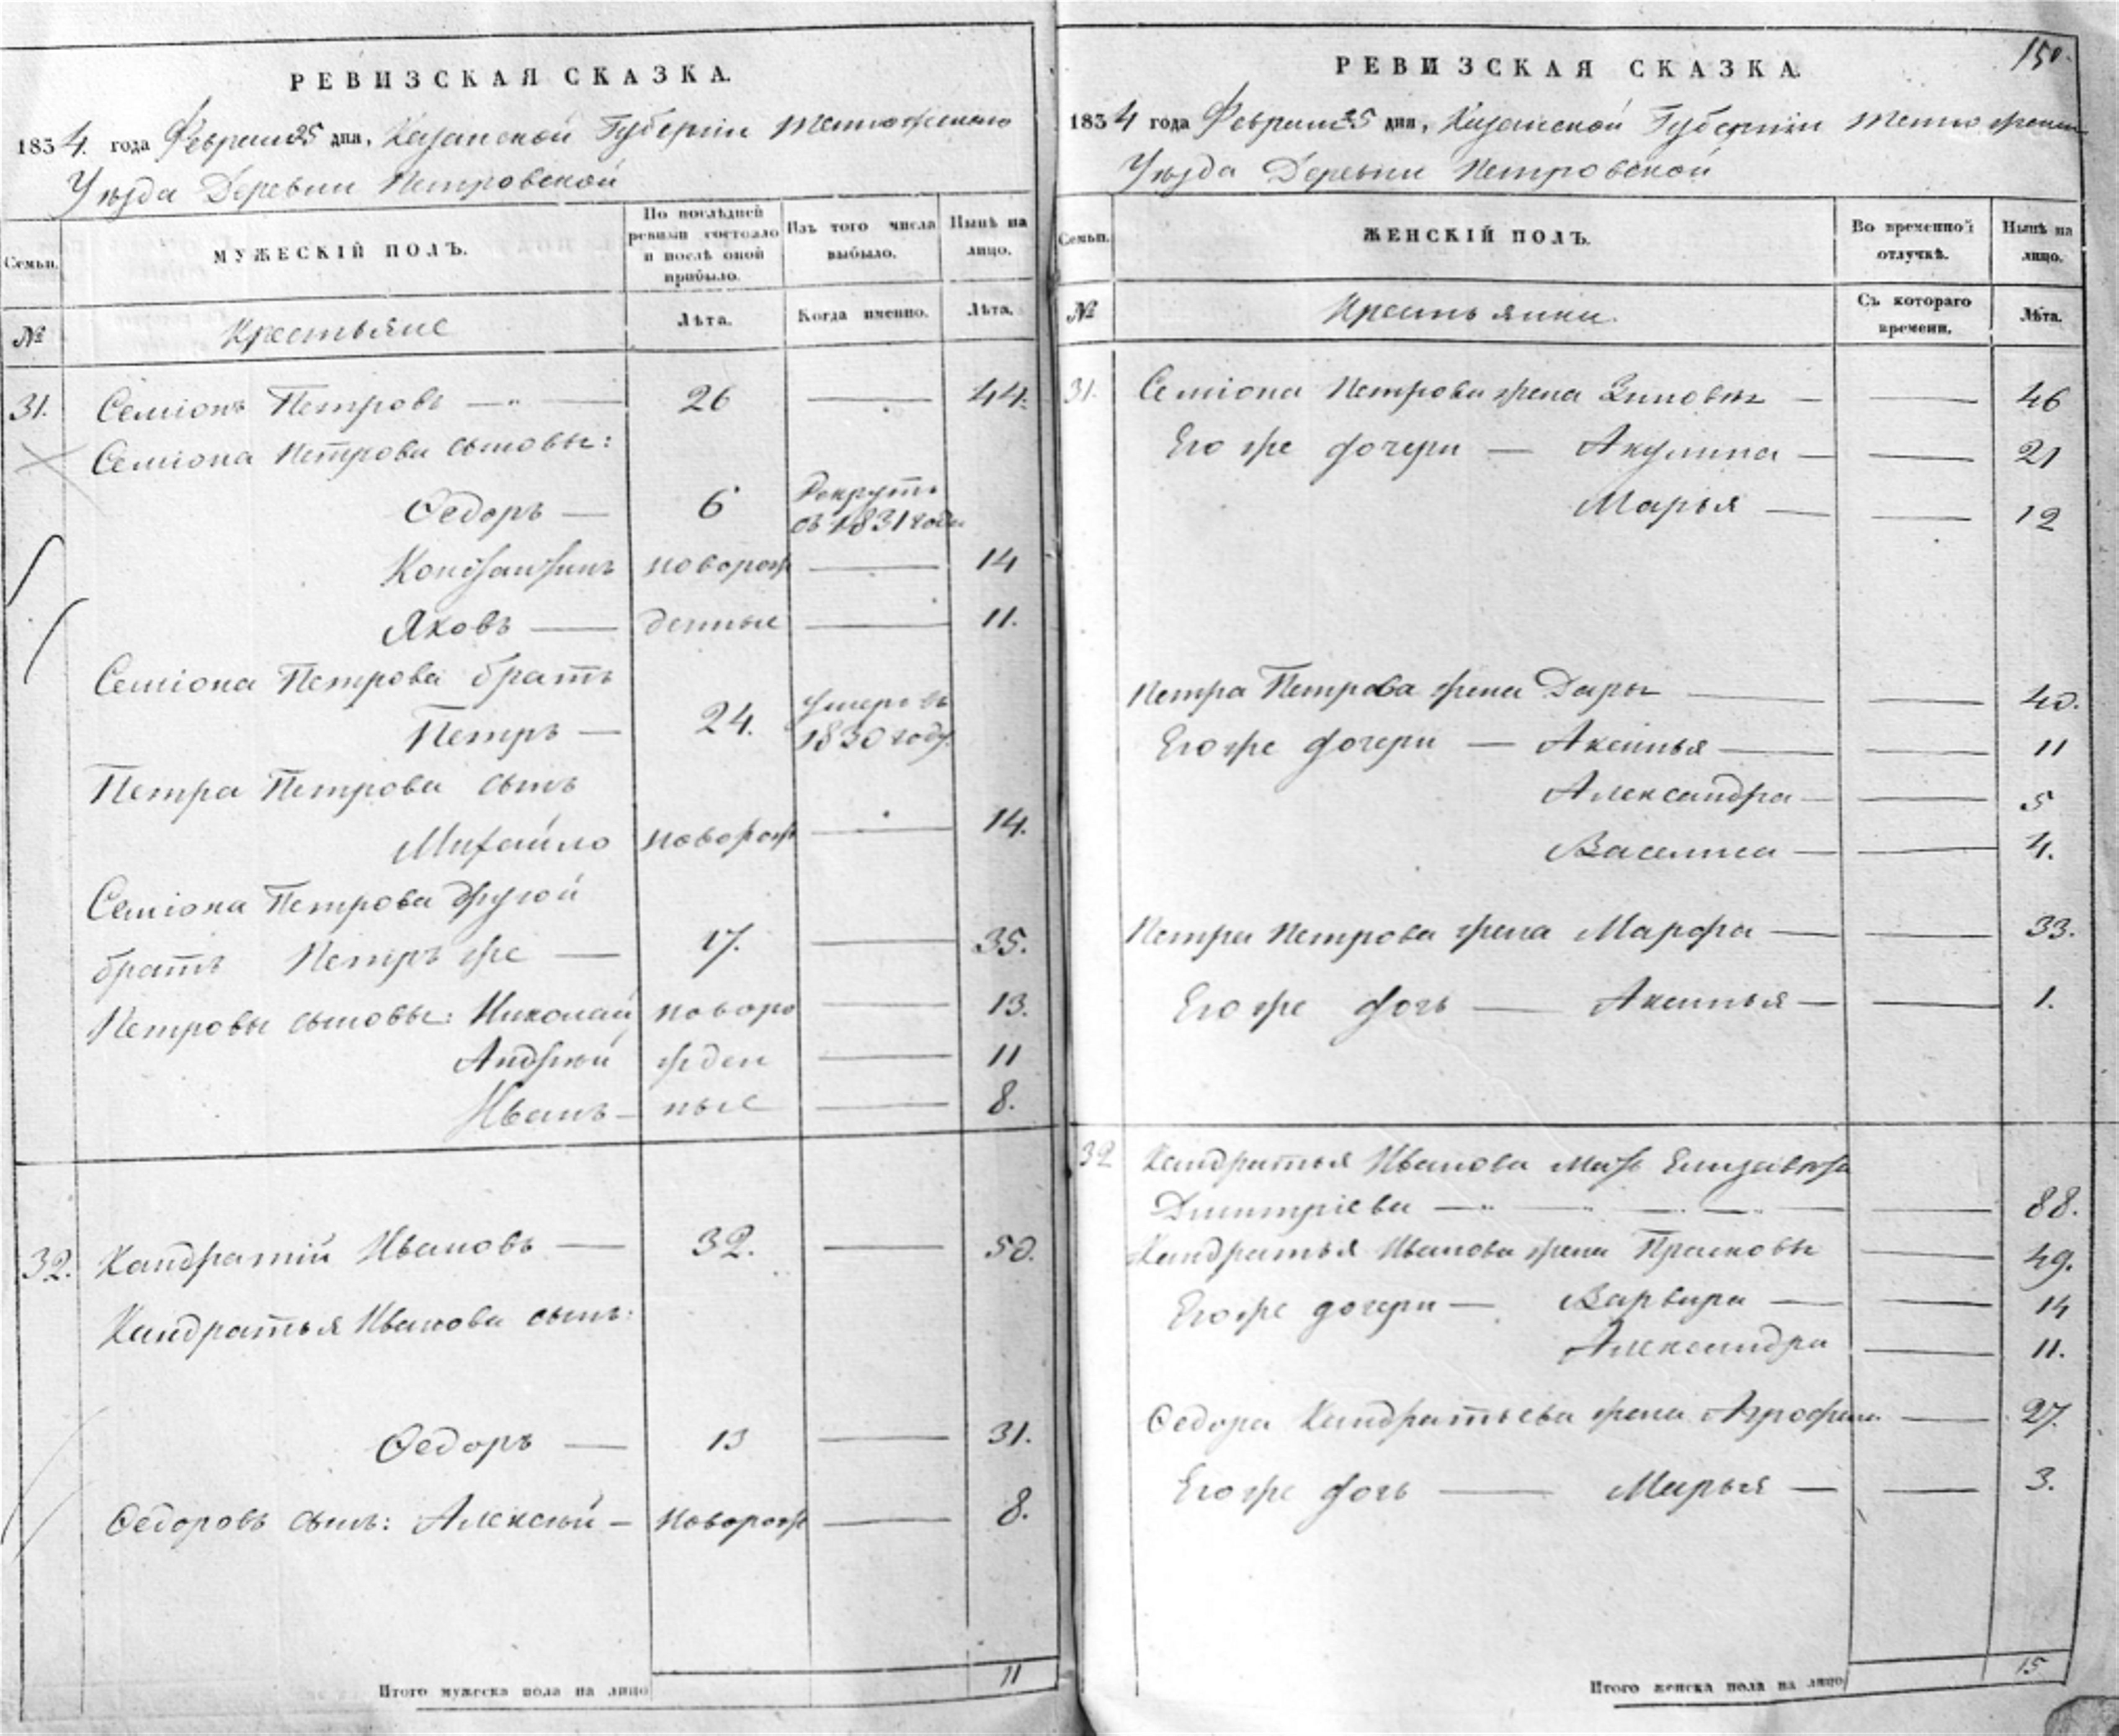 РЕВИЗСКАЯ СКАЗКА.
1834. года Февраля 25 дня, Казанской Губерніи
Уѣзда Деревни Петровской
Семьи.
МУЖЕСКІЙ ПОЛЪ.
По послѣдней ревизіи состояло и послѣ оной прибыло.
Изъ того числа выбыло.
Нынѣ на лицо.
№
Крестьяне
Лѣта.
Когда именно.
Лѣта.
31. Семіонъ Петровъ — 26 — 44.
Семіона Петрова сыновье:
Ѳедоръ — 6 Рекрутъ съ 1831 года
Константинъ новорож — 14
Яковъ — денные — 11.
Семіона Петрова братъ
Петръ — 24. умеръ въ 1830 году
Петра Петрова сынъ
Михайло новорож — 14.
Семіона Петрова другой
братъ Петръ же — 17. — 35.
Петровы сыновье: Николай новоро — 13.
Андрѣй жден — 11
Иванъ — ные — 8.
32. Кандратій Ивановъ — 32. — 50.
Кандратья Иванова сынъ:
Ѳедоръ — 13 — 31.
Ѳедоровъ сынъ: Алексѣй — новорож — 8.
Итого мужеска пола на лицо 11
150.
РЕВИЗСКАЯ СКАЗКА.
1834 года Февраля 25 дня, Казанской Губерніи
Уѣзда Деревни Петровской
Семьи.
ЖЕНСКІЙ ПОЛЪ.
Во временной отлучкѣ.
Нынѣ на лицо.
№
Крестьянки
Съ котораго времени.
Лѣта.
31. Семіона Петрова жена Зиновья — — 46
Его же дочери — Акулина — — 21
Марья — — 12
Петра Петрова жена Дарья — — 40.
Его же дочери — Аксинья — — 11
Александра — — 5
Василиса — — 4.
Петра Петрова жена Марфа — — 33.
Его же дочь — Аксинья — — 1.
32 Кандратья Иванова мать Елизавета
Димитріева — — 88.
Кандратья Иванова жена Прасковья — 49.
Его же дочери — Варвара — — 14
Александра — 11.
Ѳедора Кандратьева жена Агрофена — 27.
Его же дочь — Марья — — 3.
Итого женска пола на лицо 15